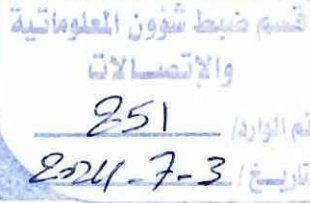 قسم ضبط شؤون المعلوماتية
والإتصالات
رقم الوارد/ 851
تاريخ/ 2024-7-3